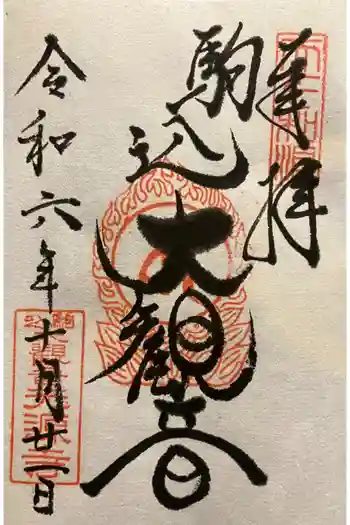 奉拝
駒込大観音
令和六年十月廿一日